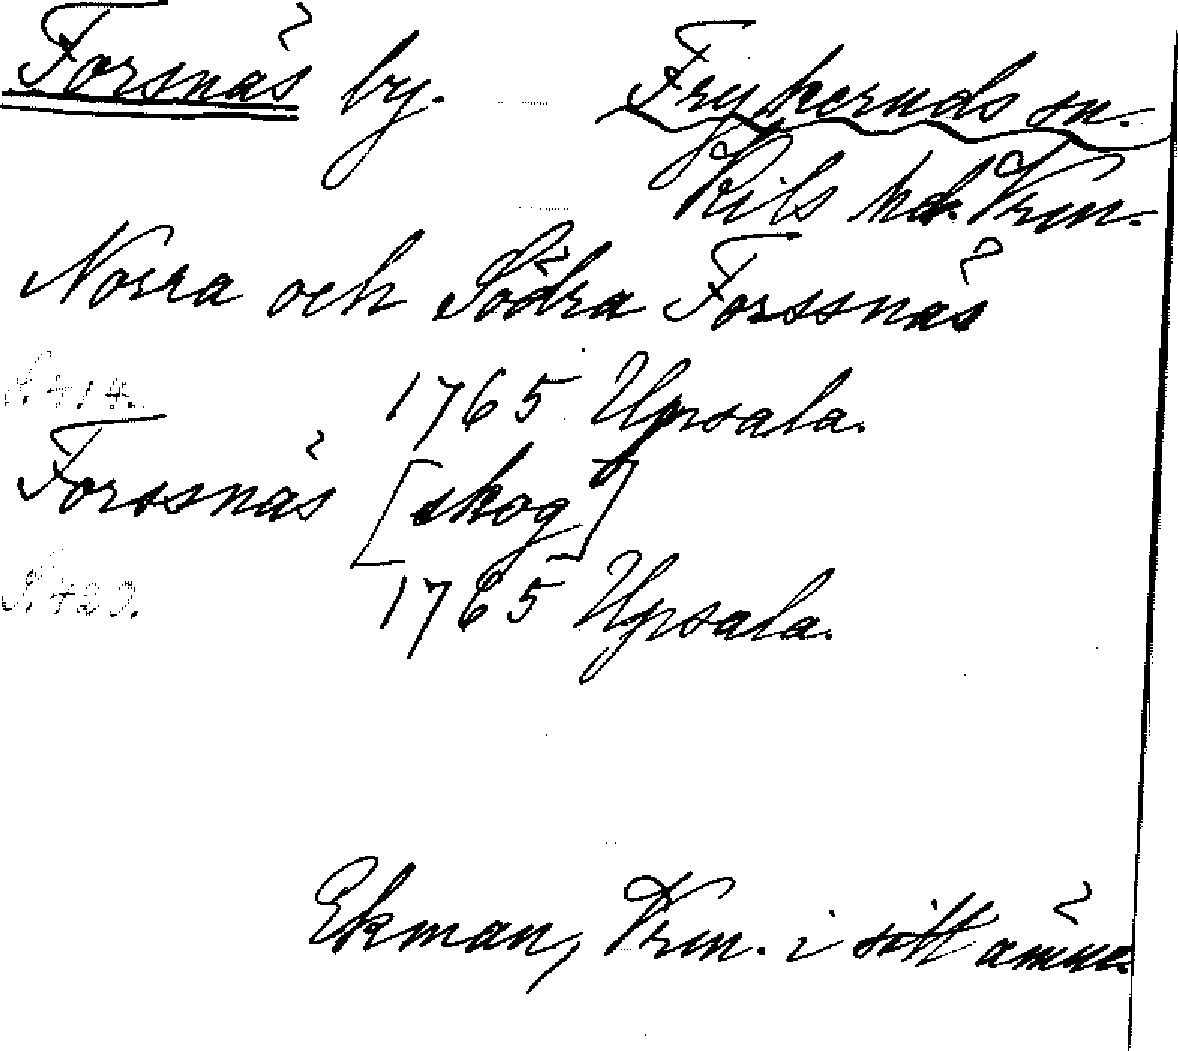 Forsnäs by. Frykeruds sn.
Kils hd. Vrm.
Norra och Södra Forssnäs
S. 414. 1765 Upsala.
Forssnäs [skog]
S. 420. 1765 Upsala.
Ekman, Vrm. i sitt ämne.